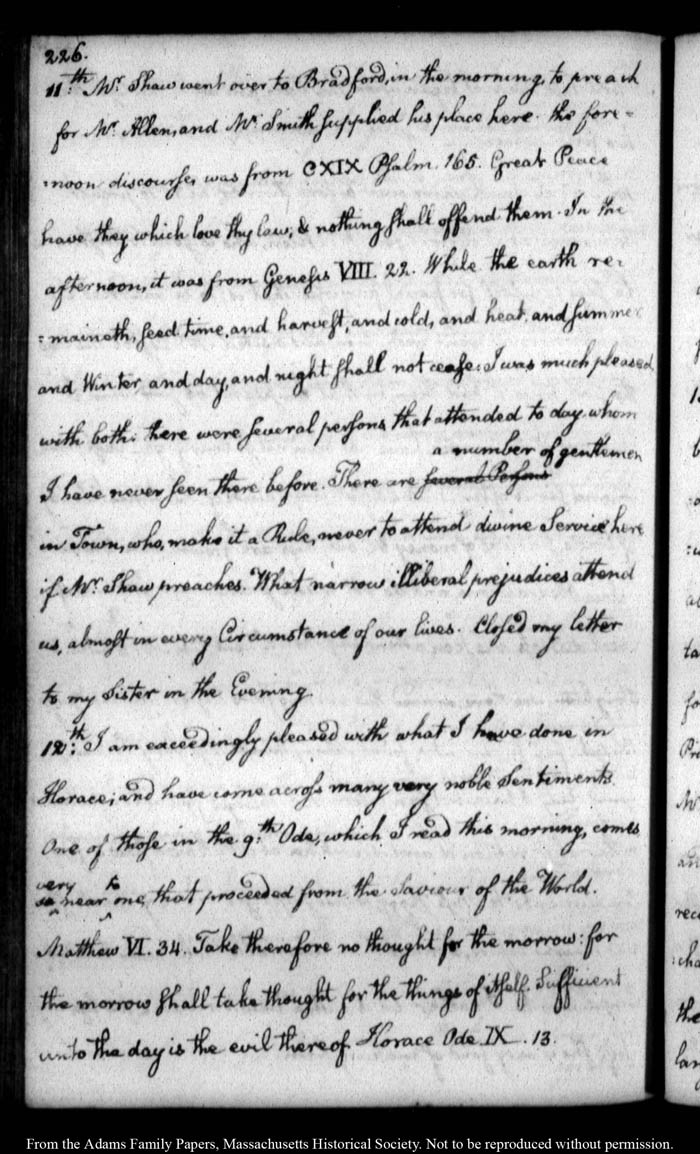 226.
11:th Mr. Shaw went over to Bradford, in the morning, to preach
for Mr. Allen, and Mr. Smith supplied his place here. the fore=
=noon discourse, was from CXIX Psalm. 165. Great Peace
have they which love thy law; & nothing shall offend them. In the
afternoon, it was from Genesis VIII. 22. While the earth re=
=maineth, seed time, and harvest, and cold, and heat, and summer
and Winter, and day, and night shall not cease. I was much pleased,
with both: there were several persons that attended to day, whom
a number of gentlemen
I have never seen there before. There are several Persons
in Town, who, make it a Rule, never to attend divine Service here
if Mr. Shaw preaches. What narrow illiberal prejudices attend
us, almost in every Circumstance of our lives. Closed my letter
to my Sister in the Evening.
12:th I am exceedingly pleased with what I have done in
Horace; and have come across many very noble Sentiments.
One of those in the 9:th Ode, which I read this morning, comes
very to
so near one, that proceeded from the Saviour of the World.
Matthew VI. 34. Take therefore no thought for the morrow: for
the morrow shall take thought for the things of itself. Sufficient
unto the day is the evil thereof. Horace Ode IX. 13.
From the Adams Family Papers, Massachusetts Historical Society. Not to be reproduced without permission.